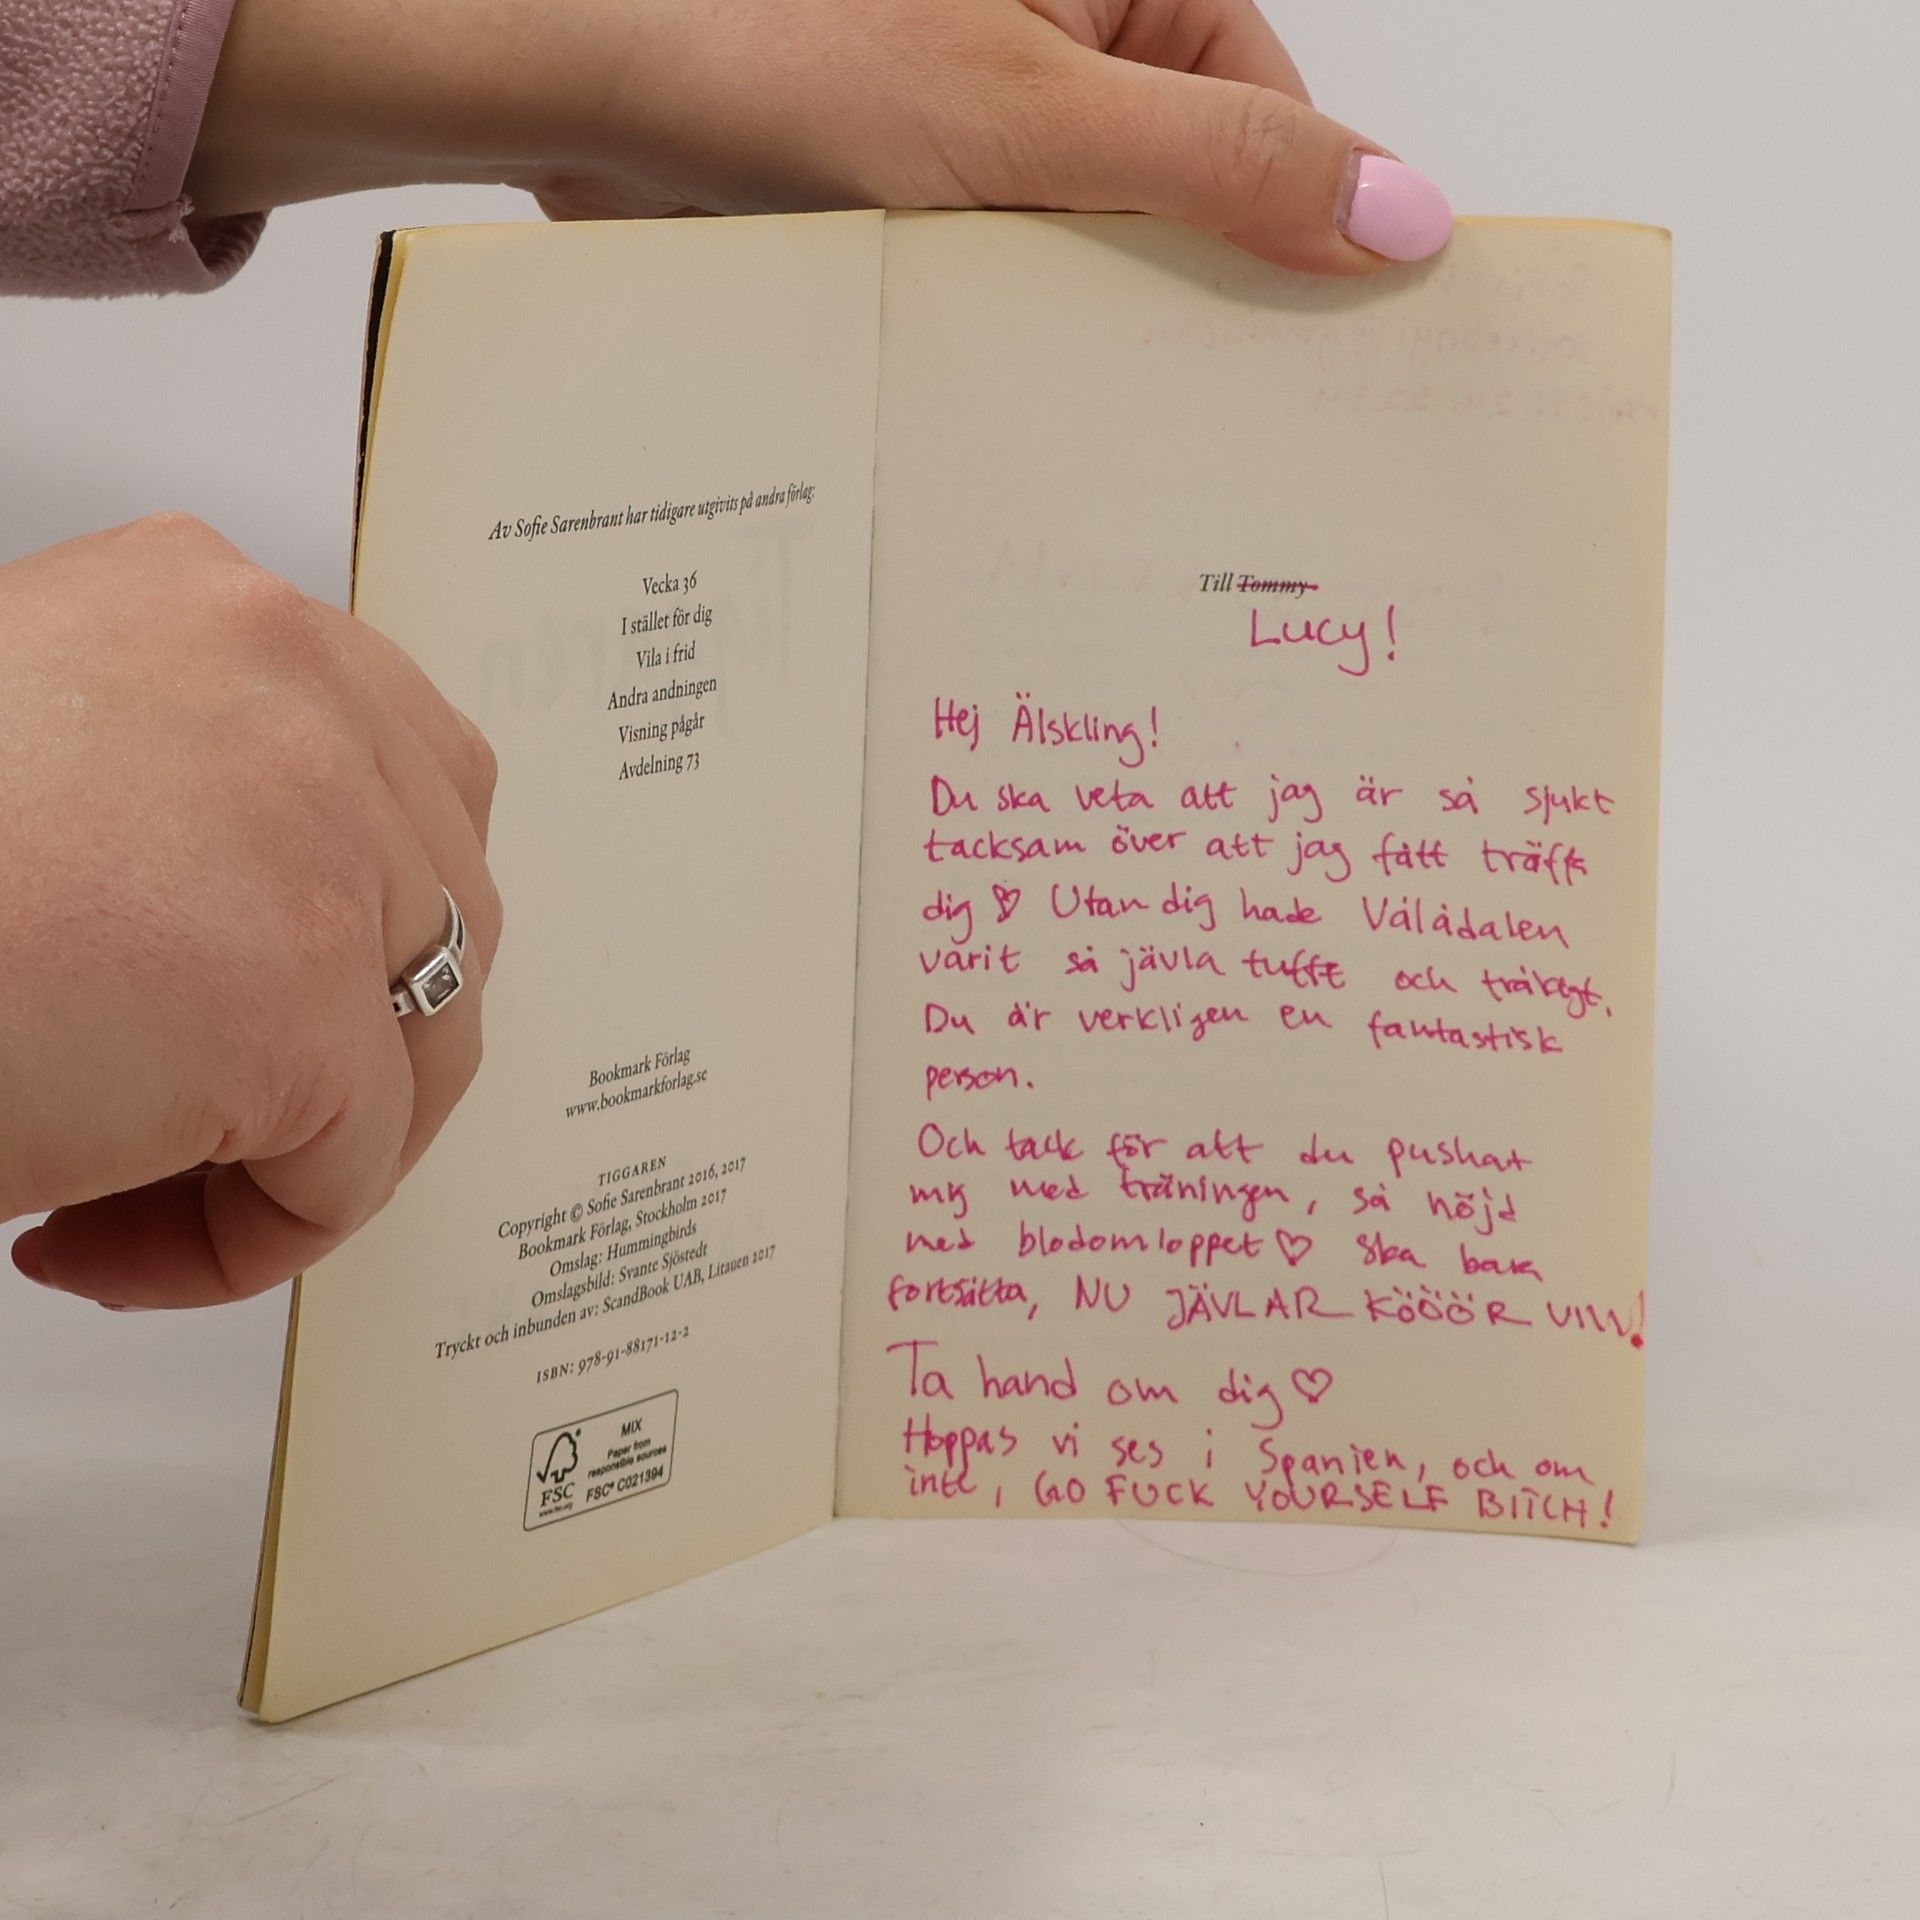 Av Sofie Sarenbrant har tidigare utgivits på andra förlag:
Vecka 36
I stället för dig
Vila i frid
Andra andningen
Visning pågår
Avdelning 73
Bookmark Förlag
www.bookmarkforlag.se
TIGGAREN
Copyright © Sofie Sarenbrant 2016, 2017
Bookmark Förlag, Stockholm 2017
Omslag: Hummingbirds
Omslagsbild: Svante Sjöstedt
Tryckt och inbunden av: ScandBook UAB, Litauen 2017
ISBN: 978-91-88171-12-2
MIX
Paper from
responsible sources
FSC® C021394
FSC
www.fsc.org
Till Tommy
Lucy!
Hej Älskling!
Du ska veta att jag är så sjukt
tacksam över att jag fått träffa
dig ♡ Utan dig hade Vålådalen
varit så jävla tufft och tråkigt.
Du är verkligen en fantastisk
person.
Och tack för att du pushat
mig med träningen, så nöjd
med blodomloppet ♡ ska bara
fortsätta, NU JÄVLAR KÖÖÖR VI!
Ta hand om dig ♡
Hoppas vi ses i Spanien, och om
inte, GO FUCK YOURSELF BITCH!